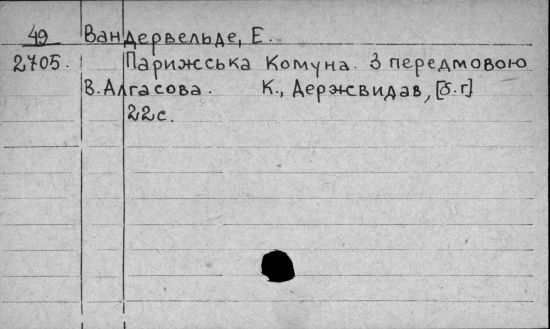 49 Вандервельде, Е.
2705. Парижська Комуна. З передмовою
В. Алгасова. К., Держвидав, [б.г]
22с.